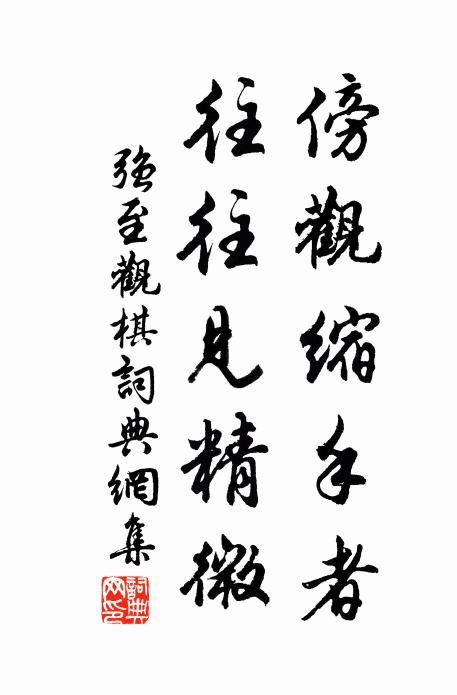 傍觀縮手者
往往見精微
強至觀棋詞典網集
詞典网印